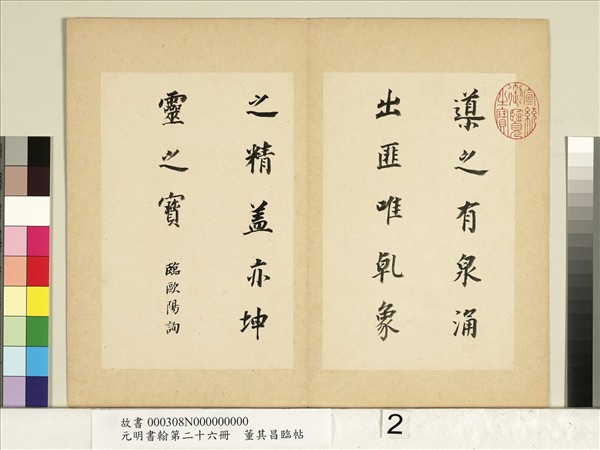 導之有泉涌
出匪唯乹象
之精盖亦坤
靈之寳
臨歐陽詢
宣統御覽之寶
故書 000308N000000000
元明書翰第二十六冊 董其昌臨帖
2